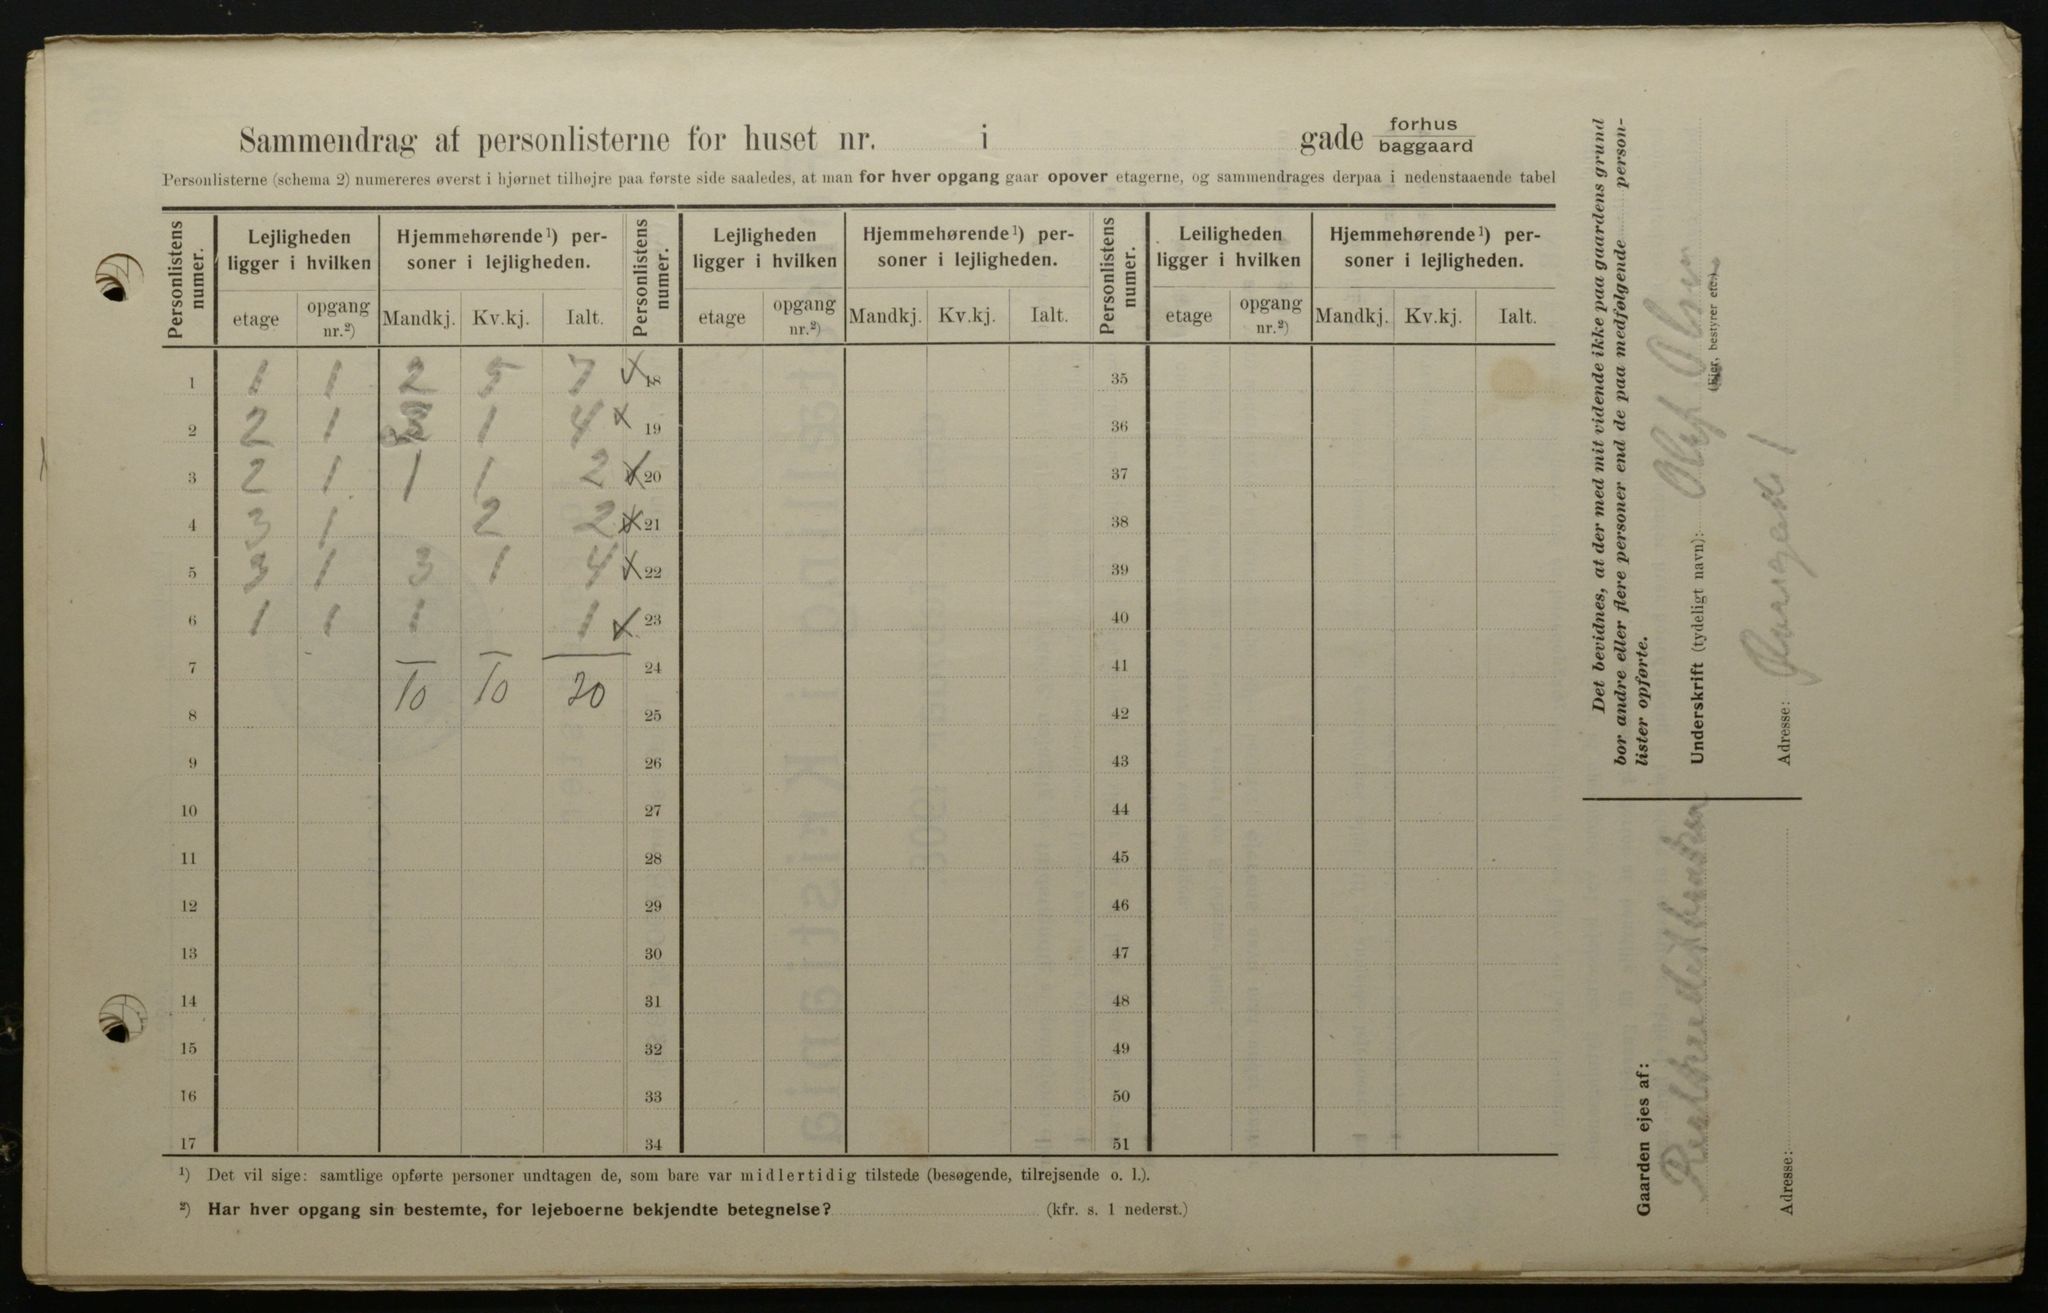 Sammendrag af personlisterne for huset nr. i gade forhus baggaard
Personlisterne (schema 2) numereres øverst i hjørnet tilhøjre paa første side saaledes, at man for hver opgang gaar opover etagerne, og sammendrages derpaa i nedenstaaende tabel
Personlistens numer. Lejligheden ligger i hvilken Hjemmehørende¹) personer i lejligheden. Personlistens numer. Lejligheden ligger i hvilken Hjemmehørende¹) personer i lejligheden. Personlistens numer. Leiligheden ligger i hvilken Hjemmehørende¹) personer i lejligheden.
etage opgang nr.²) Mandkj. Kv.kj. Ialt. etage opgang nr.²) Mandkj. Kv.kj. Ialt. etage opgang nr.²) Mandkj. Kv.kj. Ialt.
1 1 1 2 5 7 18 35
2 2 1 3 1 4 19 36
3 2 1 1 1 2 20 37
4 3 1 2 2 21 38
5 3 1 3 1 4 22 39
6 1 1 1 1 23 40
7 10 10 20 24 41
8 25 42
9 26 43
10 27 44
11 28 45
12 29 46
13 30 47
14 31 48
15 32 49
16 33 50
17 34 51
¹) Det vil sige: samtlige opførte personer undtagen de, som bare var midlertidig tilstede (besøgende, tilrejsende o. l.).
²) Har hver opgang sin bestemte, for lejeboerne bekjendte betegnelse? (kfr. s. 1 nederst.)
Det bevidnes, at der med mit vidende ikke paa gaardens grund
bor andre eller flere personer end de paa medfølgende person-
lister opførte.
Underskrift (tydeligt navn): Olaf Olsen
(Eier, bestyrer etc.)
Adresse: 1
Gaarden ejes af:
Adresse: